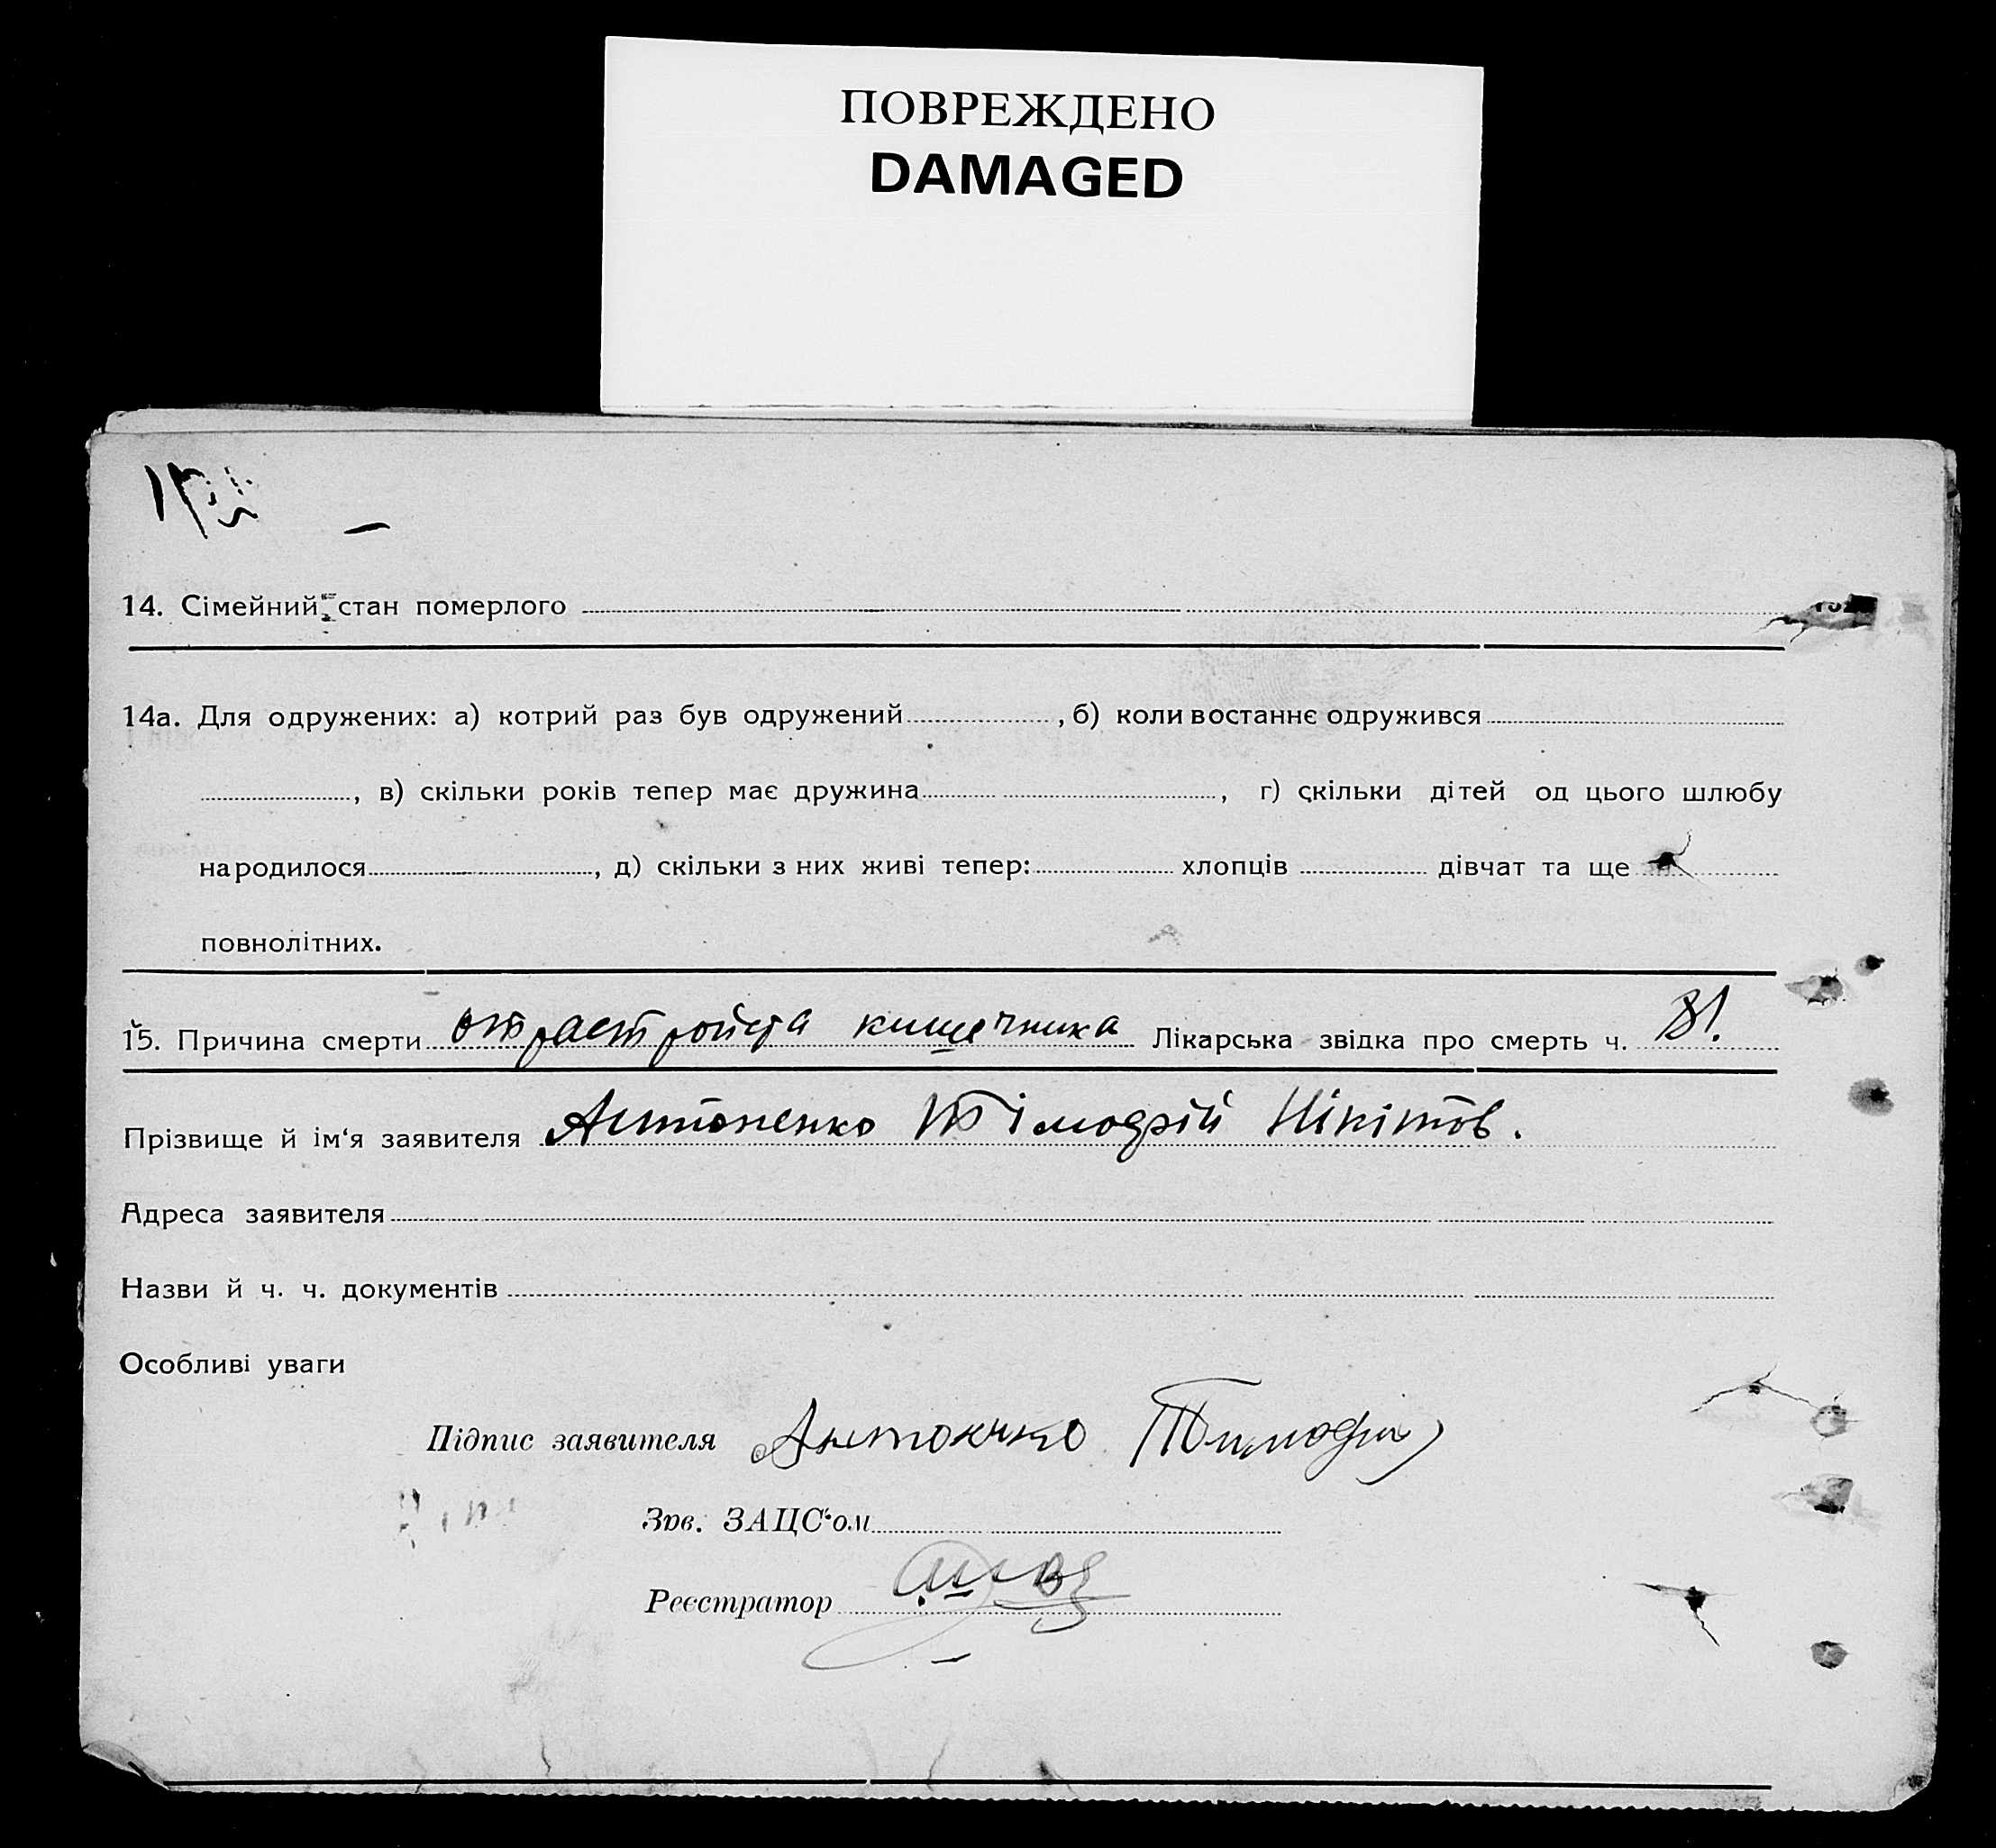 ПОВРЕЖДЕНО
DAMAGED
14. Сімейний стан померлого
14а. Для одружених: а) котрий раз був одружений , б) коли востаннє одружився
, в) скільки років тепер має дружина , г) скільки дітей од цього шлюбу
народилося , д) скільки з них живі тепер: хлопців дівчат та ще
повнолітних.
15. Причина смерти от растройста кишечника Лікарська звідка про смерть ч.
Прізвище й ім'я заявителя Антоненко Тімофій Нікітов.
Адреса заявителя
Назви й ч. ч. документів
Особливі уваги
Підпис заявителя Антоненко Тимофій
Зав. ЗАЦС'ом
Реєстратор